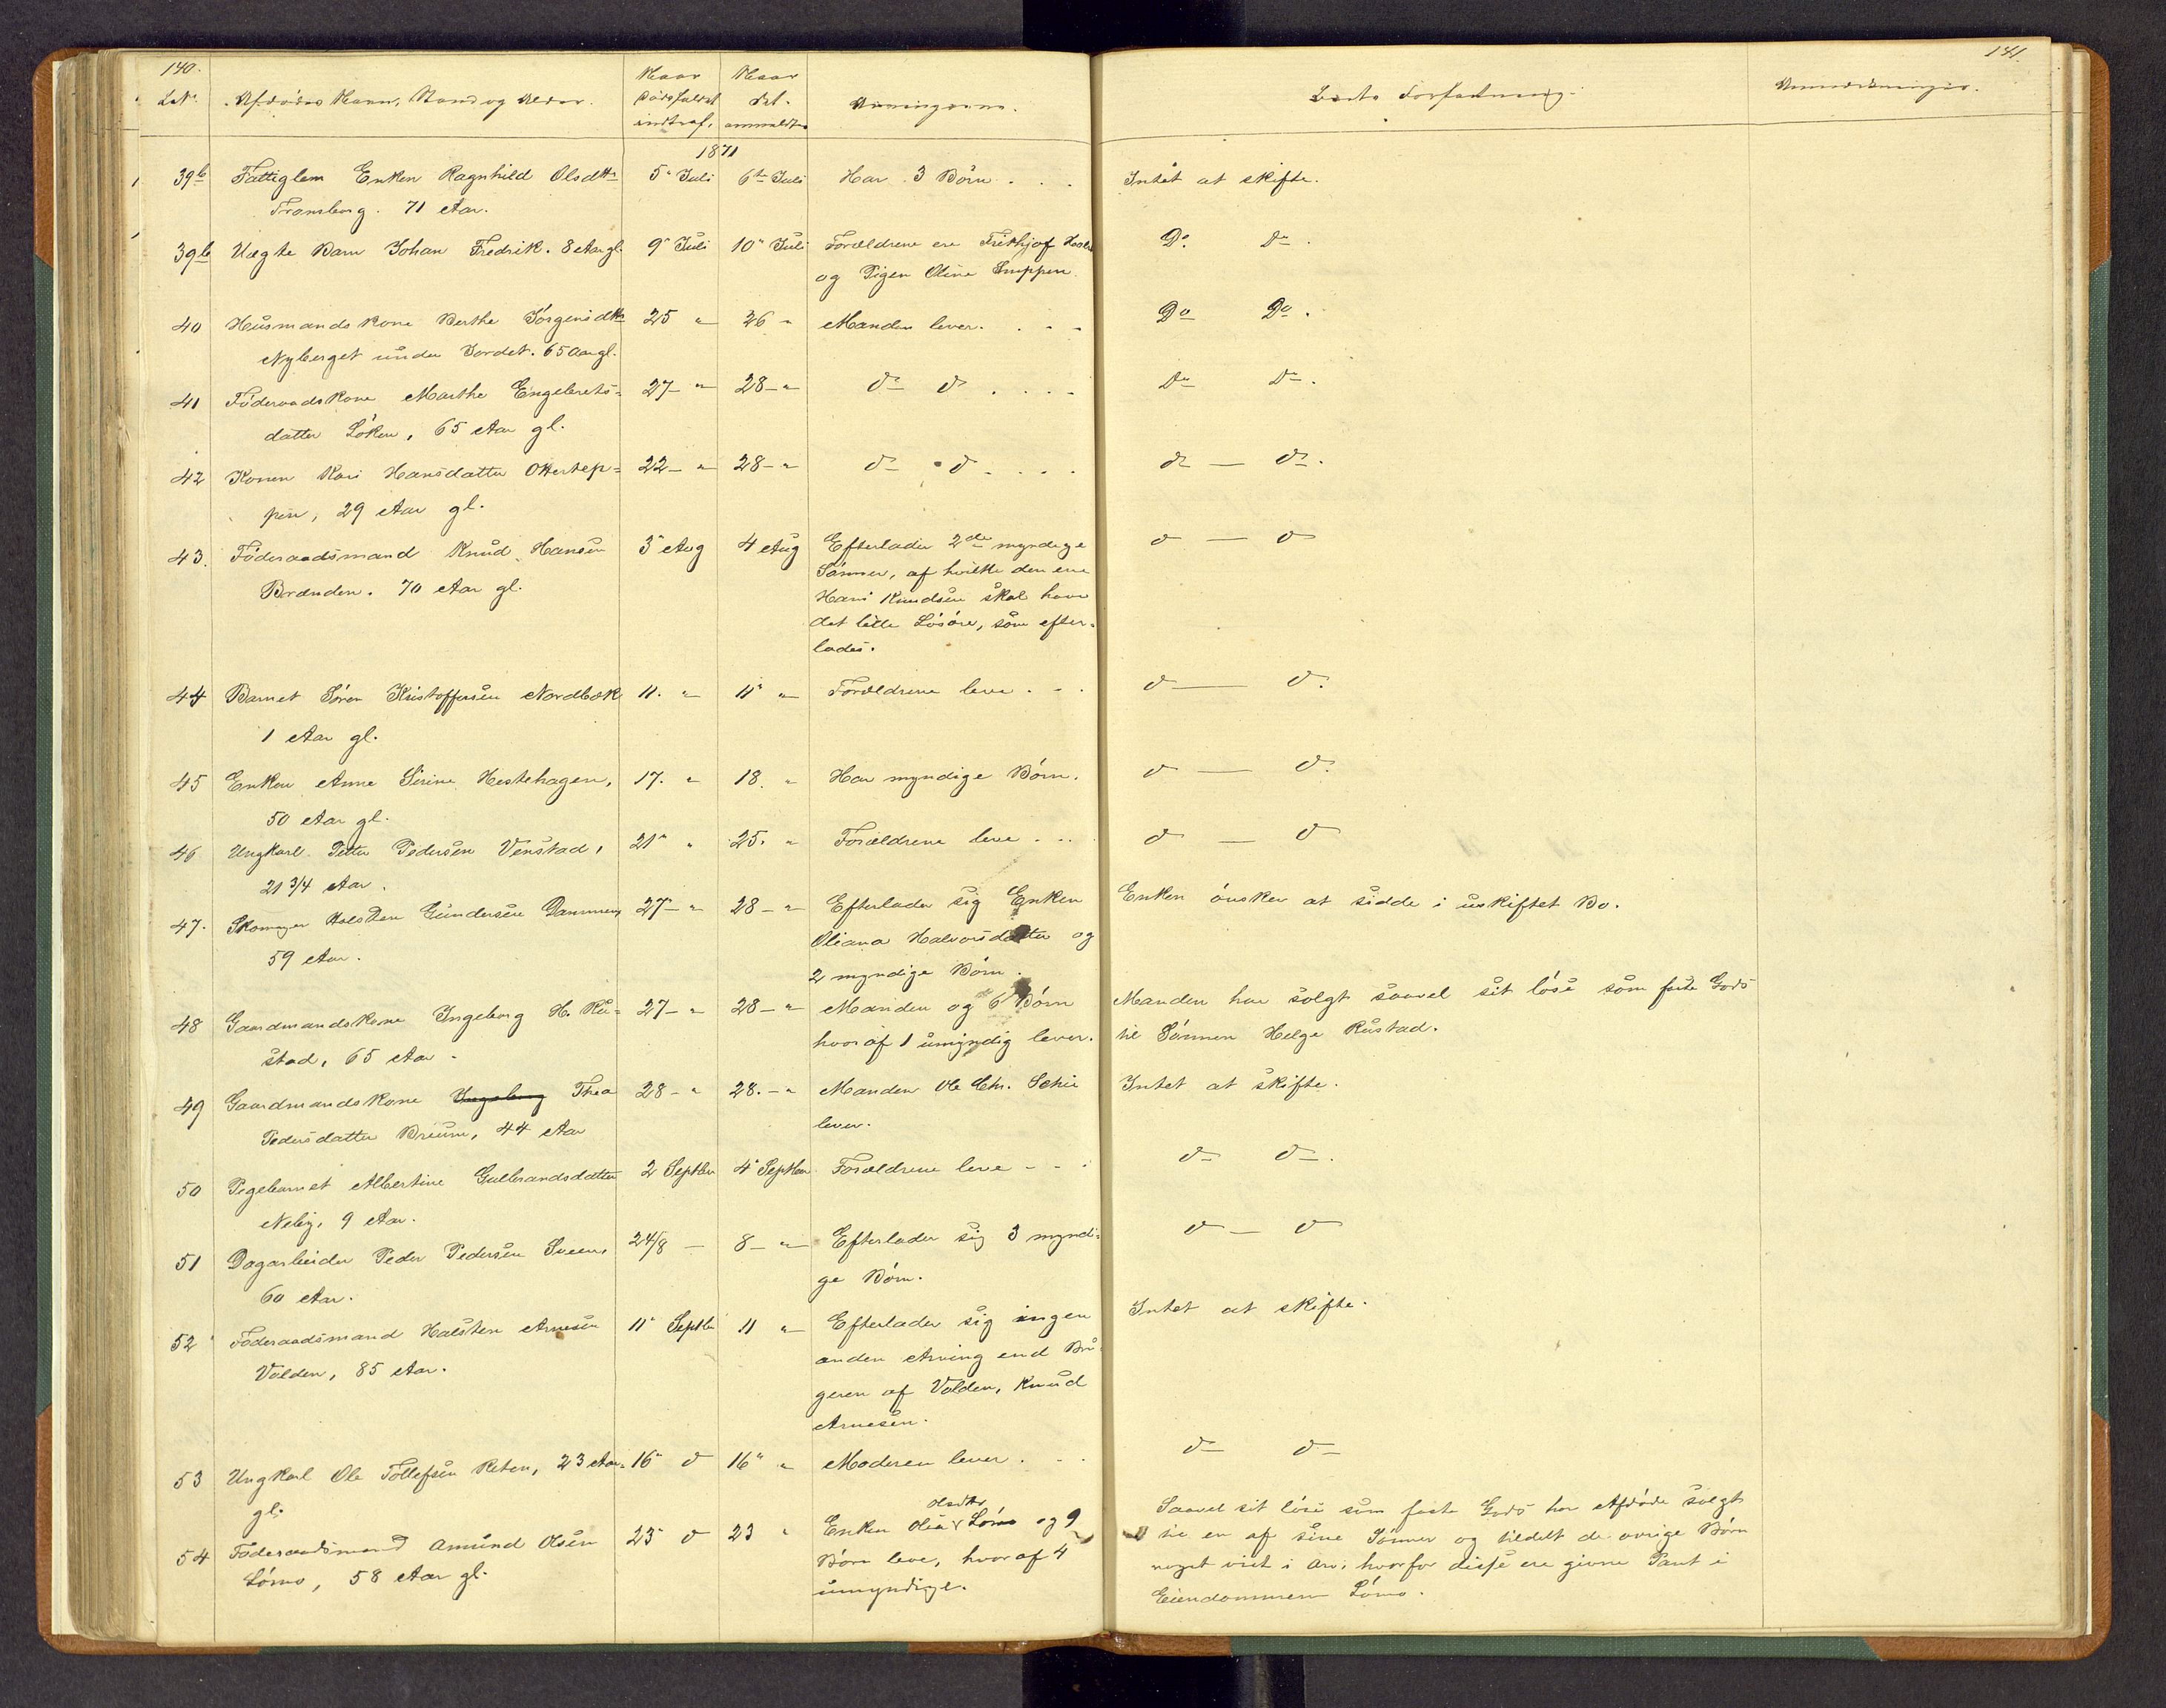 140.
LNo. Afdødes Navn, Stand og Alder. Naar Dødsfaldet indtraf, Naar det anmeldtes Arvingerne.
1871
39b Fattiglem Enken Ragnhild Olsdtr 5" Juli 6te Juli Har 3 Børn . . .
71 Aar.
39b Uægte Barn Johan Fredrik. 8 Aar gl. 9" Juli 10" Juli Forældrene ere Frithjof
og Pigen Oline
40 Husmandskone Berthe Jørgensdtr 25 " 26 " Manden lever. . - -
Nyberget under Jordet. 65 Aar gl.
41 Føderaadskone Marthe Engebrets- 27- " 28- " d- d . . . .
datter Løken, 65 Aar gl.
42 Konen Kari Hansdatter Ottestep- 22- " 28- " d- d - . . .
pen, 29 Aar gl.
43. Føderaadsmand Knud Hansen 3" Aug 4 Aug Efterlader 2de myndige
Brænden. 70 Aar gl. Sønner, af hvilke den ene
Hans Knudsen skal have
det lille Løsøre, som efter-
lades.
44 Barnet Søren Kristoffersen Nordbæk 11. " 11" " Forældrene leve . - .
1 Aar gl.
45 Enken Anne Sirine Hestehagen, 17. " 18. " Har myndige Børn.
50 Aar gl.
46 Ungkarl Petter Pedersen Venstad, 21" " 25. " Forældrene leve - . .
21 3/4 Aar.
47. Skomager Halsten Gundersen Dammen, 27- " 28- " Efterlader sig Enken
59 Aar. Oliana Halvorsdatter og
2 myndige Børn.
48 Gaardmandskone Ingeborg H. Ru- 27- " 28- " Manden og 6 Børn
stad, 65 Aar - hvoraf 1 umyndig lever.
49 Gaardmandskone Ingeborg Thea 28- " 28.- " Manden Ole Chr. Schie
Pedersdatter Breum, 44 Aar lever.
50 Pigebarnet Albertine Gulbrandsdatter 2 Septbr 4" Septbr Forældrene leve - - .
Neby, 9 Aar.
51 Dagarbeider Peder Pedersen Sveen, 24/8 - 8- " Efterlader sig 3 myndi-
60 Aar. ge Børn.
52 Føderaadsmand Halsten Arnesen 11" Septbr 11 " Efterlader sig ingen
Volden, 85 Aar. anden Arving end Bru-
geren af Volden, Knud
Arnesen.
53 Ungkarl Ole Tollefsen Reten, 23 Aar 16" d 16" " Moderen lever . . .
gl.
54 Føderaadsmand Amund Olsen 23" d 23 " Enken Olea Olsdtr Lømo og 9
Lømo, 58 Aar gl. Børn leve, hvoraf 4
umyndige.
141.
Boets Forfatning. Anmærkninger.
Intet at skifte.
Do. Do.
Do Do.
Do Do.
do - do.
d - d
d - d.
d - d.
d - d
Enken ønsker at sidde i uskiftet Bo.
Manden har solgt saavel sit løse som faste Gods
til Sønnen Helge Rustad.
Intet at skifte.
d- d-.
d - d
Intet at skifte.
d- d-
Saavel sit løse som faste Gods har Afdøde solgt
til en af sine Sønner og tildelt de øvrige Børn
noget vist i Arv, hvorfor disse ere givne Pant i
Eiendommen Lømo.